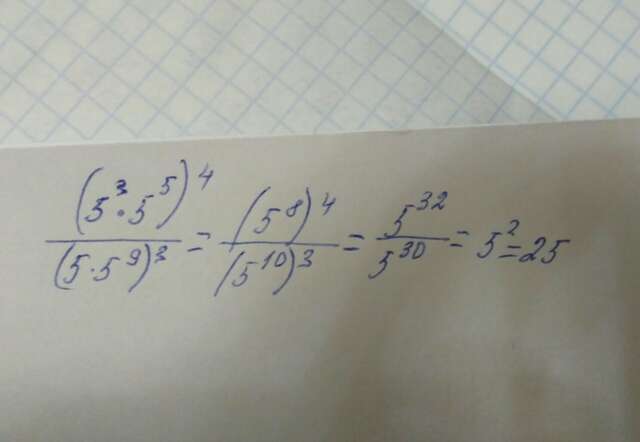 (5³·5⁵)⁴/(5·5⁹)³ = (5⁸)⁴/(5¹⁰)³ = 5³²/5³⁰ = 5² = 25